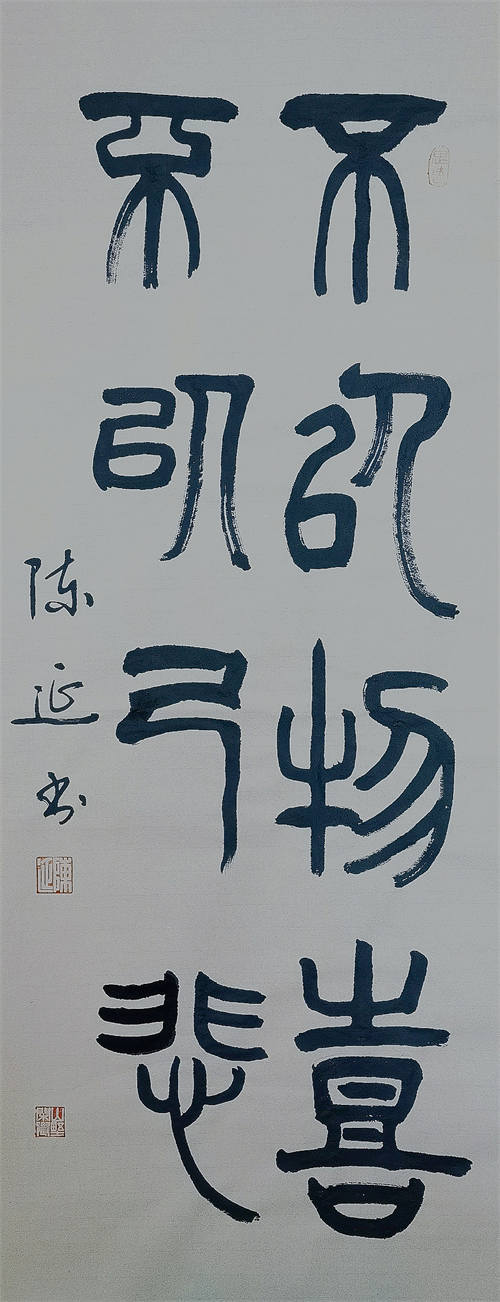 不以物喜
不以己悲
陈延书
陳延